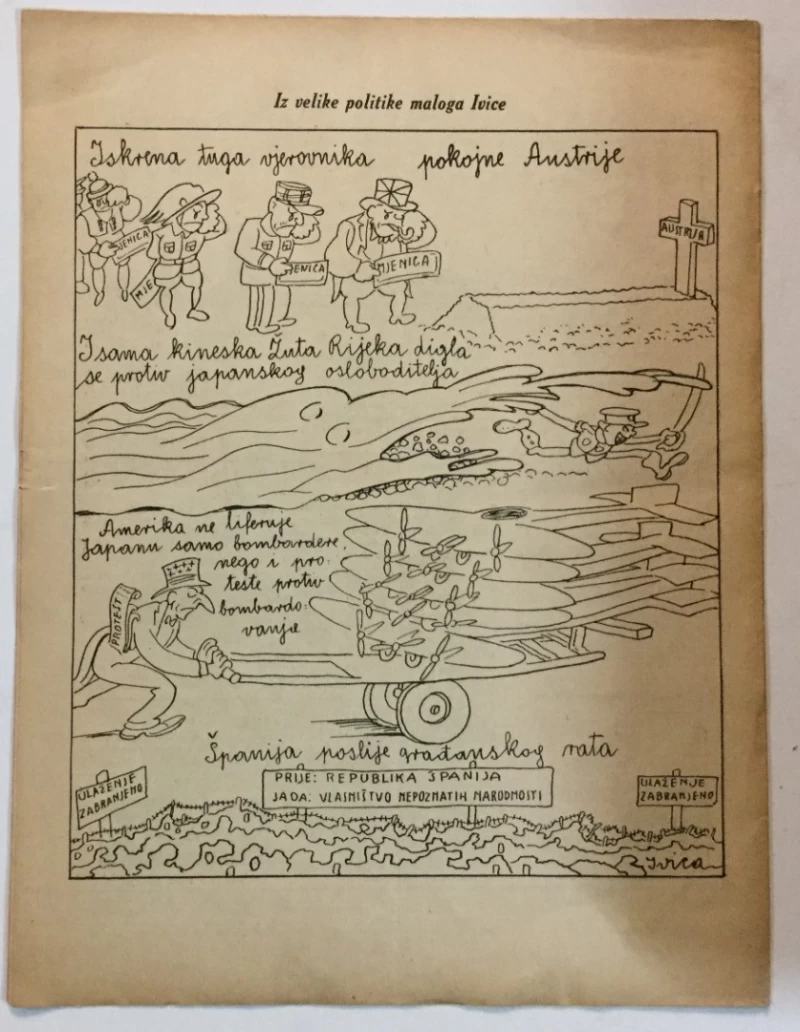 Iz velike politike maloga Ivice
Iskrena tuga vjerovnika pokojne Austrije
MJENICA
MJE
JENICA
MJENICA
AUSTRIJA
I sama kineska Žuta Rijeka digla
se protiv japanskog osloboditelja
Amerika ne liferuje
Japanu samo bombardere,
nego i pro-
teste protiv
bombardo-
vanja
PROTEST
Španija poslije građanskog rata
ULAŽENJE
ZABRANJENO
PRIJE: REPUBLIKA ŠPANIJA
SADA: VLASNIŠTVO NEPOZNATIH NARODNOSTI
ULAŽENJE
ZABRANJENO
Ivica